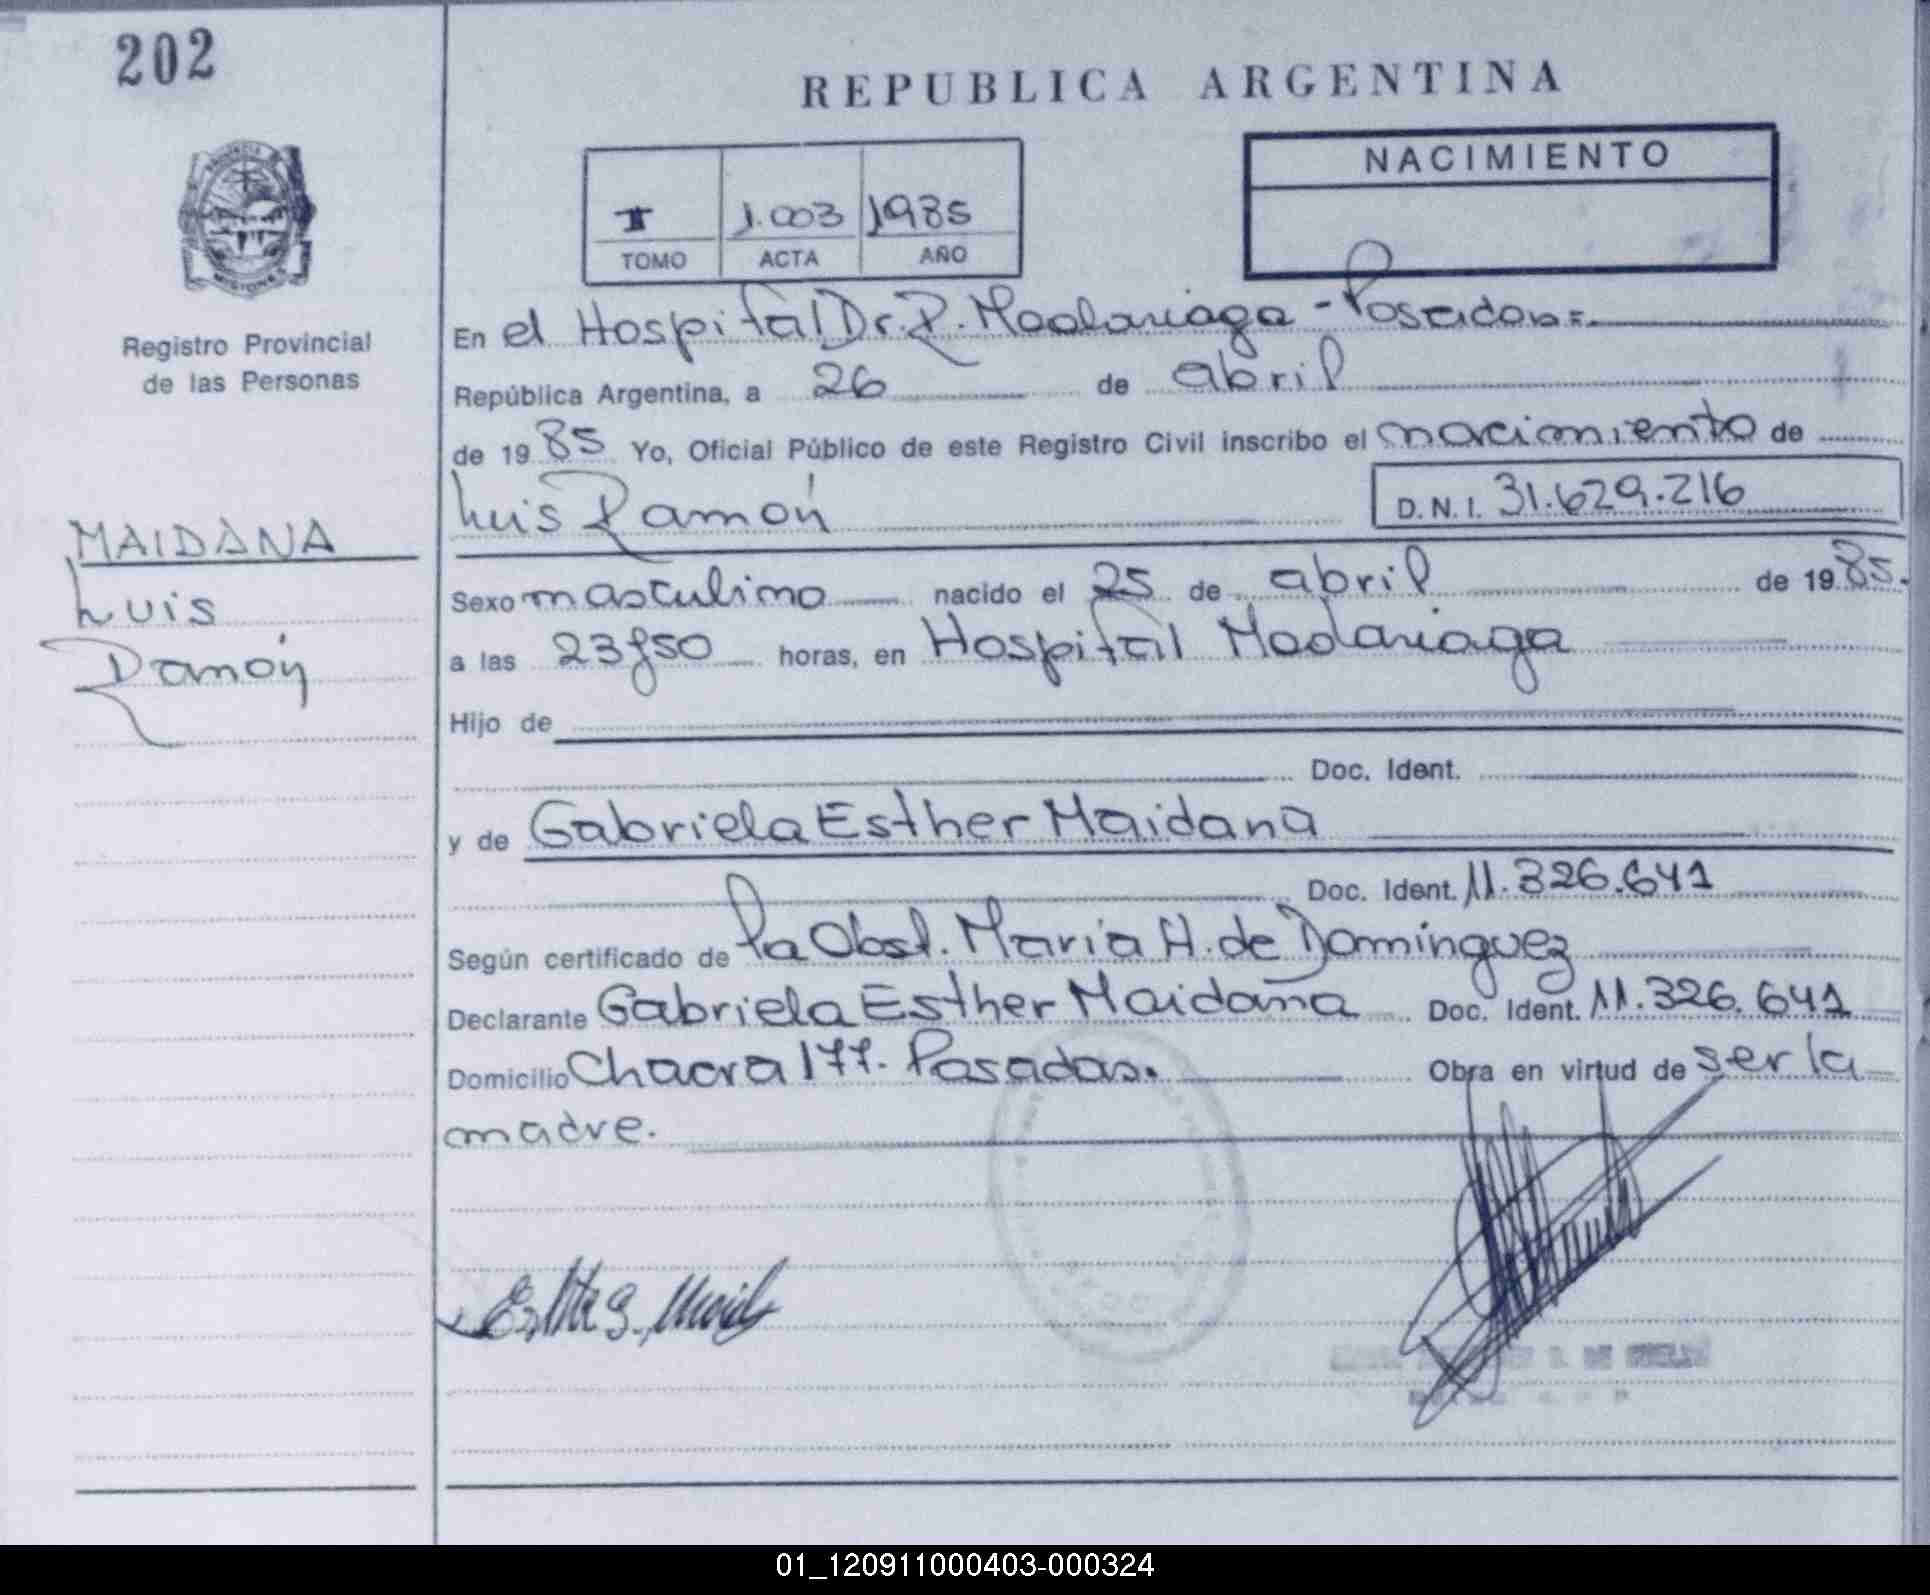 202
REPUBLICA ARGENTINA
NACIMIENTO
I 1.003 1985
TOMO ACTA AÑO
PROVINCIA DE
MISIONES
Registro Provincial
de las Personas
MAIDANA
Luis
Ramón
En el Hospital Dr. R. Madariaga - Posadas =.
República Argentina, a 26 de abril
de 19 85 Yo, Oficial Público de este Registro Civil inscribo el nacimiento de
Luis Ramón D.N.I. 31.629.216
Sexo masculino nacido el 25 de abril de 19 85.
a las 23y50 horas, en Hospital Madariaga
Hijo de
Doc. Ident.
y de Gabriela Esther Maidana
Doc. Ident. 11.326.641
Según certificado de la Obst. Maria H. de Domínguez
Declarante Gabriela Esther Maidana Doc. Ident. 11.326.641
Domicilio Chacra 177. Posadas. Obra en virtud de ser la
madre.
01_120911000403-000324